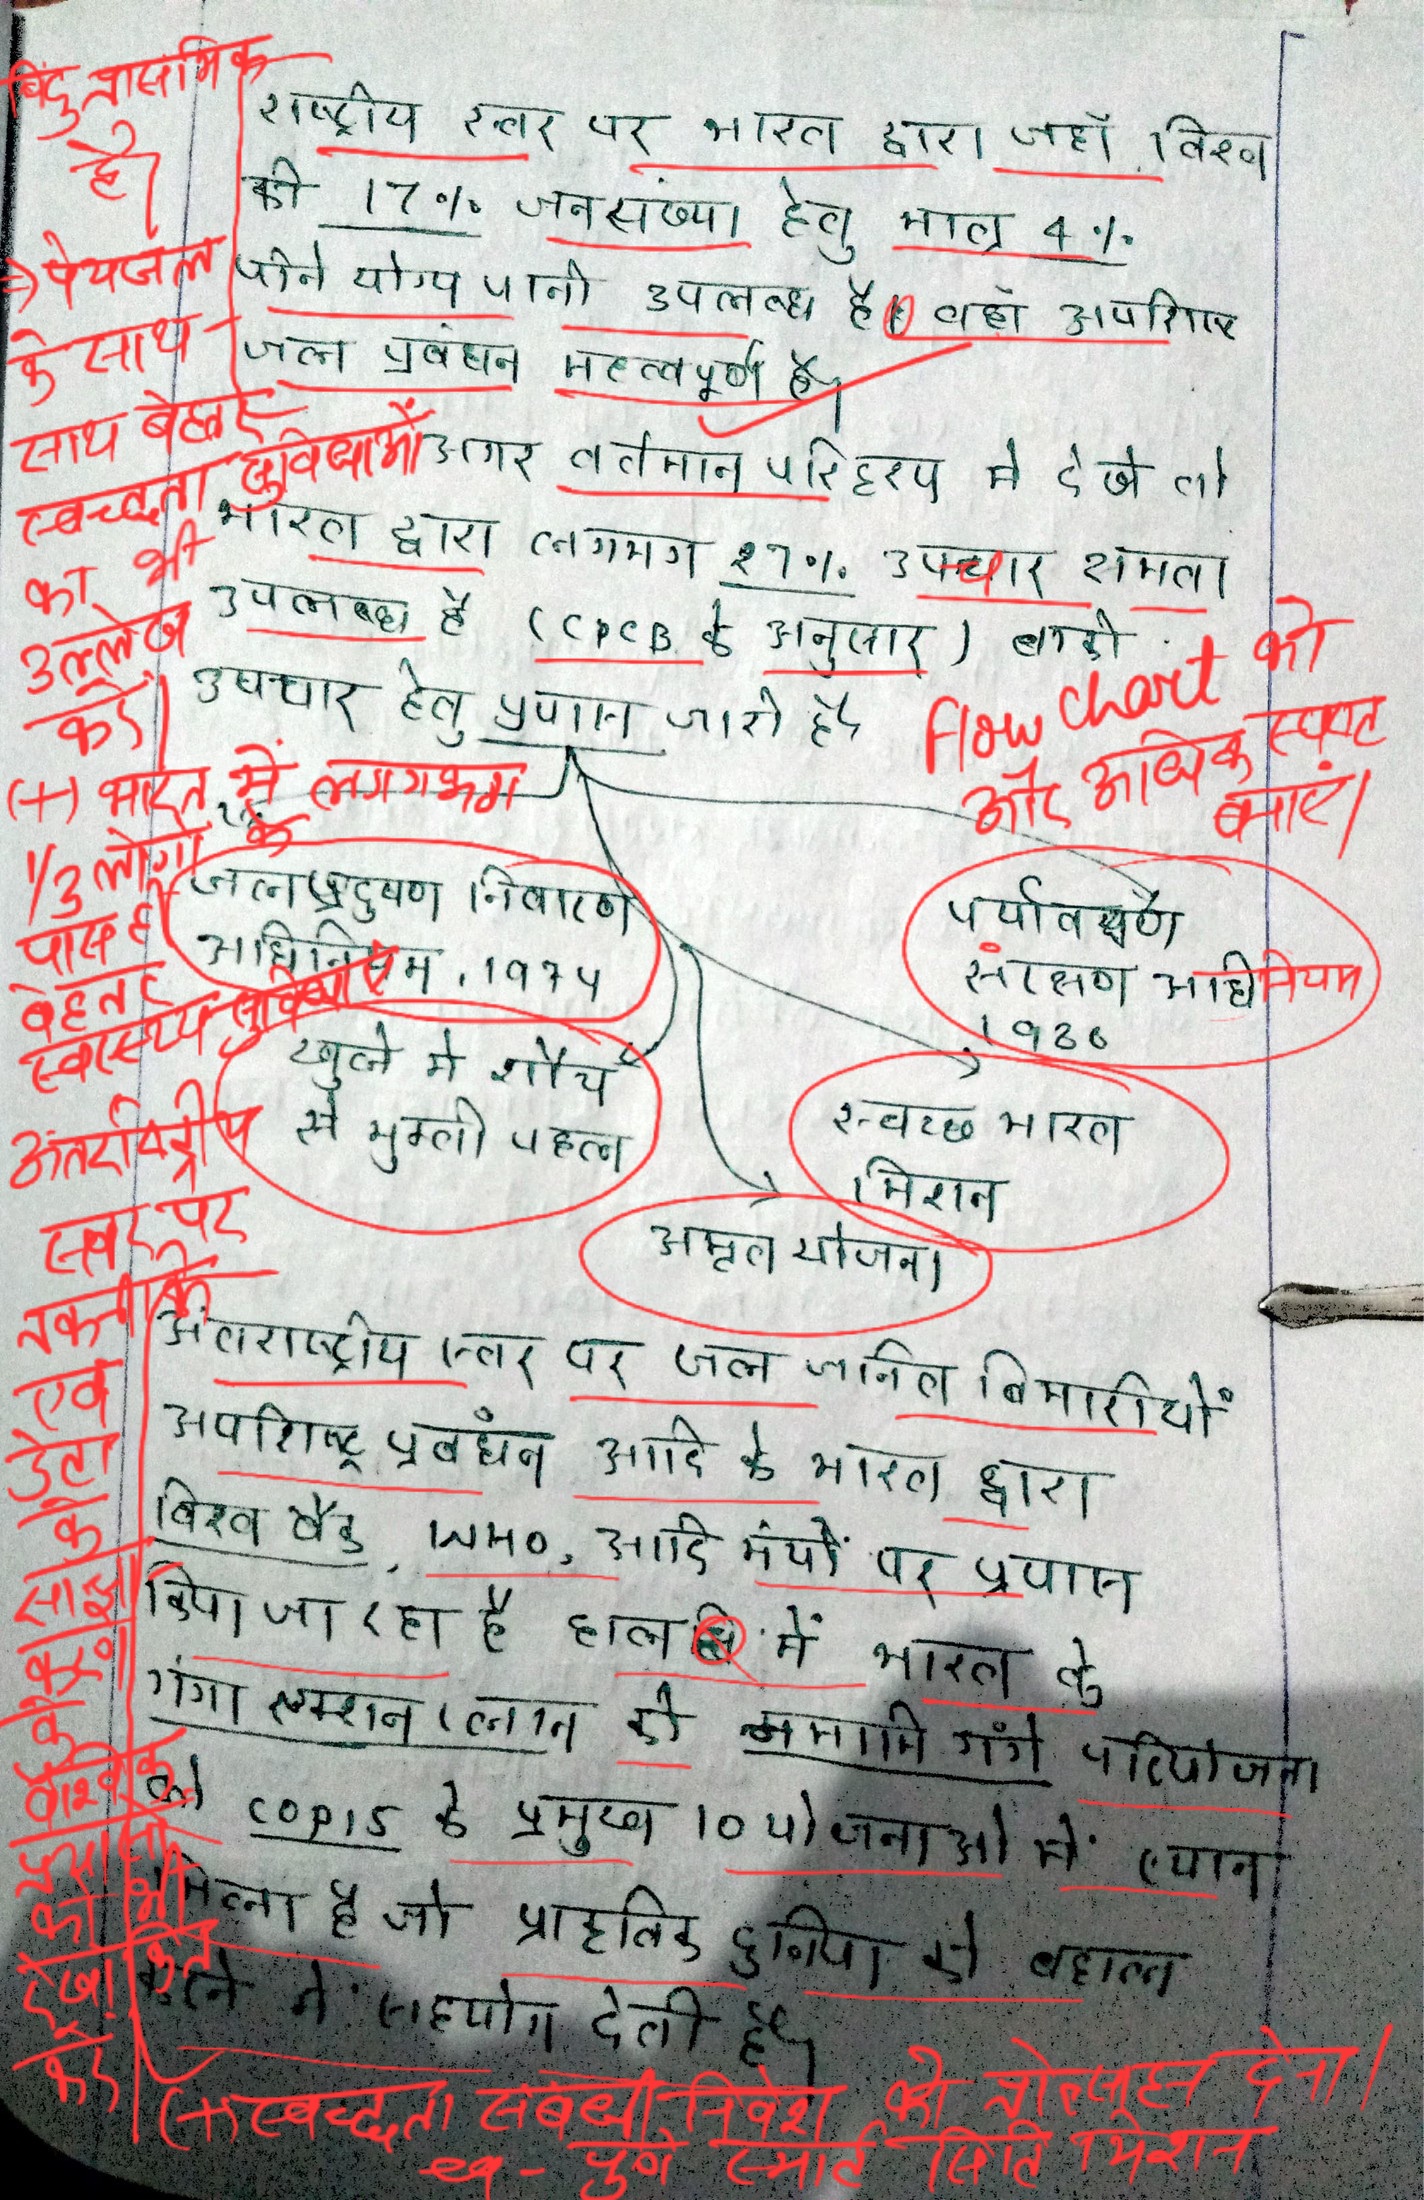 बिंदु प्रासंगिक
है।
→ पेयजल
के साथ-
साथ बेहतर
स्वच्छता सुविधाओं
का भी
उल्लेख
करें।
(+) भारत में लगगभग
1/3 लोगों के
पास ही
बेहतर
स्वास्थ्य सुविधाएं
अंतर्राष्ट्रीय
स्तर पर
तकनीकि
एवं
डेटा
के
साझा
करने
के
वैश्विक
प्रयासों
को भी
रेखांकित
करें
राष्ट्रीय स्तर पर भारत द्वारा जहाँ विश्व
की 17% जनसंख्या हेतु मात्र 4%
पीने योग्य पानी उपलब्ध है। वहाँ अपशिष्ट
जल प्रबंधन महत्वपूर्ण है।
अगर वर्तमान परिदृश्य में देखे तो
भारत द्वारा लगभग 27% उपचार क्षमता
उपलब्ध है (CPCB के अनुसार) बाकी
उपचार हेतु प्रयास जारी है।
flow chart को
और अधिक स्पष्ट
बनाएं।
जल प्रदुषण निवारण
अधिनियम, 1974
पर्यावरण
संरक्षण अधिनियम
1986
खुले में शौच
से मुक्ती पहल
स्वच्छ भारत
मिशन
अमृत योजना
अंतराष्ट्रीय स्तर पर जल जनित बिमारीयों
अपशिष्ट प्रबंधन आदि के भारत द्वारा
विश्व बैंक, WHO, आदि मंचों पर प्रयास
किया जा रहा है हाल ही में भारत के
गंगा एक्शन प्लान की नमामि गंगे परियोजना
को COP15 के प्रमुख 10 योजनाओ में स्थान
मिला है जो प्राकृतिक दुनिया को बहाल
करने में सहयोग देती है।
(+) स्वच्छता संबंधी निवेश को प्रोत्साहन देना।
eg - पुणे स्मार्ट सिटि मिशन